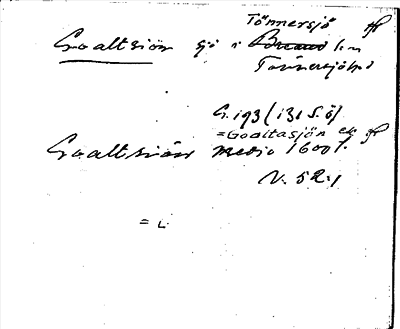 Tönnersjö
Goaltsiön sjö i Breared sn
Tönnersjö hd
G. 193 (131 S. Ö)
= Goaltasjön
Goaltsiön medio 1600 t.
N. 52:1
= L